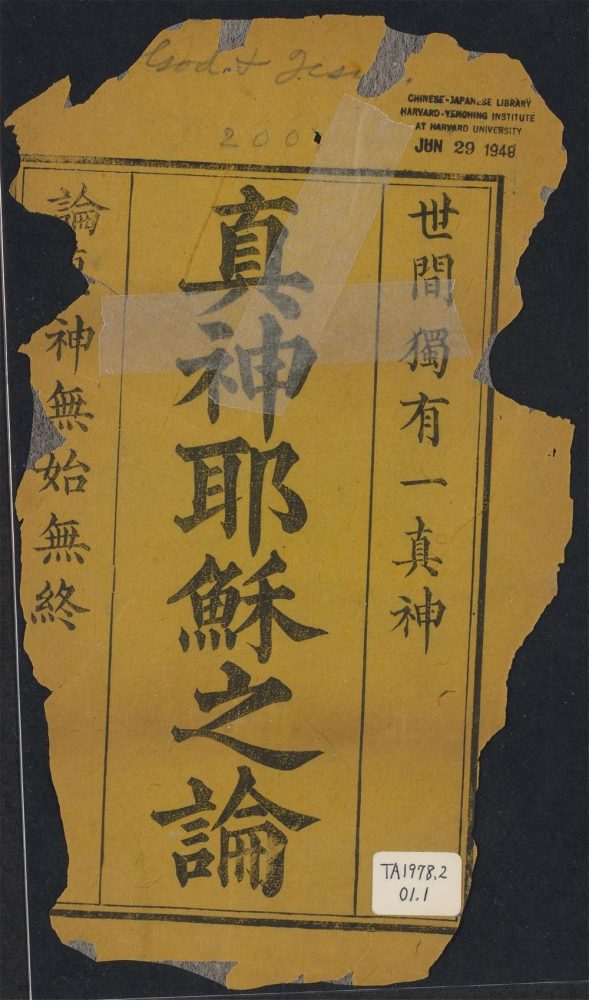 God & Jesus.
CHINESE-JAPANESE LIBRARY
HARVARD-YENCHING INSTITUTE
AT HARVARD UNIVERSITY
JUN 29 1948
200
世間獨有一真神
真神耶穌之論
論神無始無終
TA1978.2
01.1